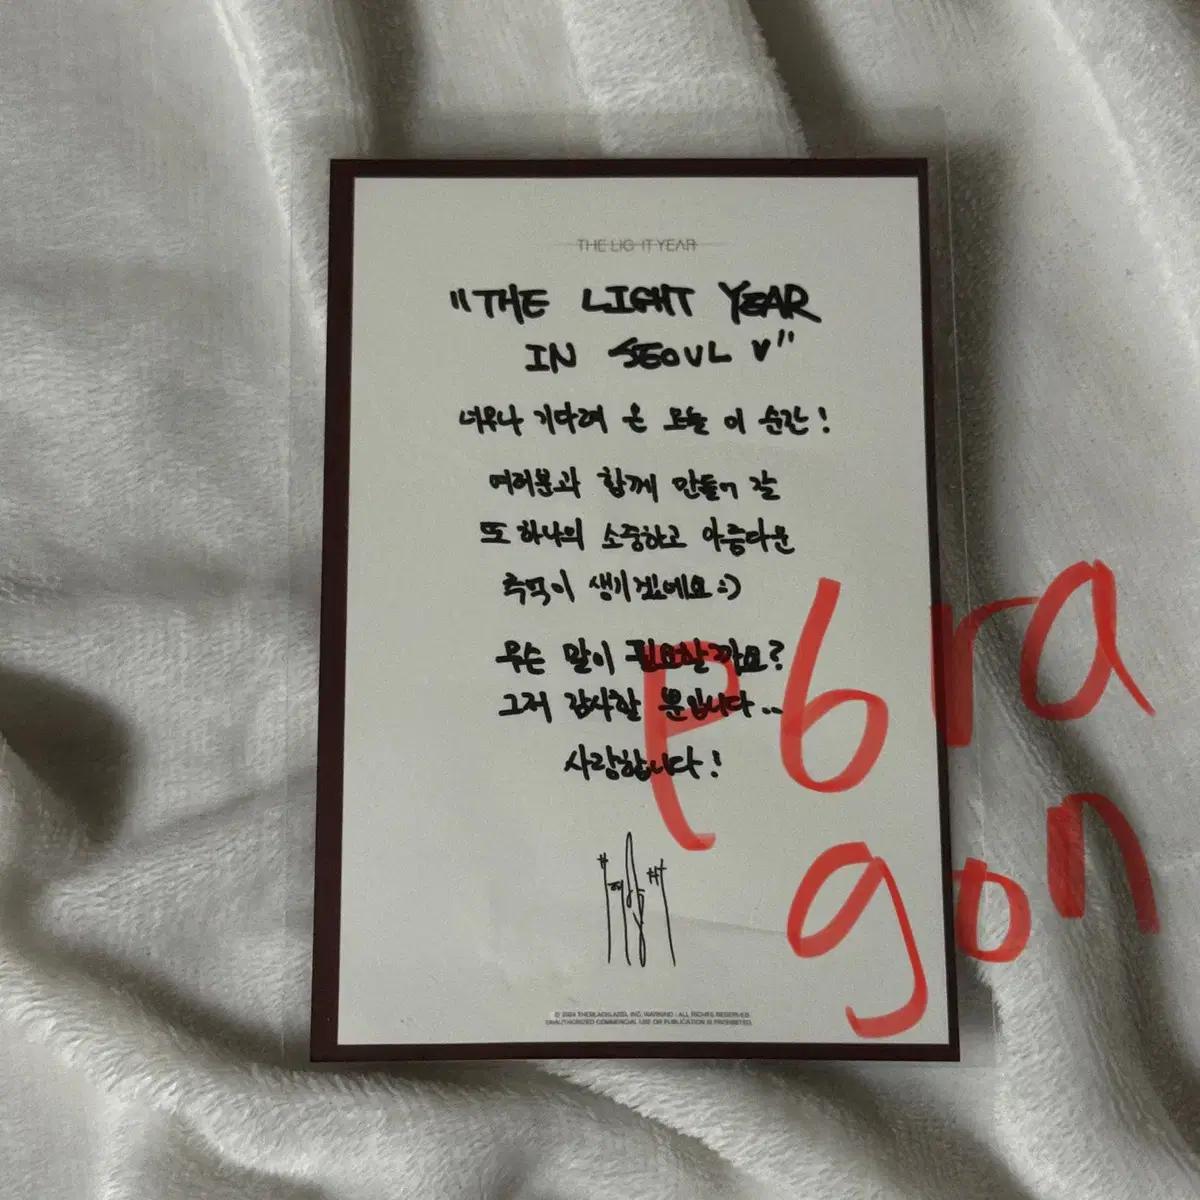 THE LIGHT YEAR
"THE LIGHT YEAR
IN SEOUL ♥"
너무나 기다려 온 오늘 이 순간!
여러분과 함께 만들어 갈
또 하나의 소중하고 아름다운
추억이 생기겠네요 :)
무슨 말이 필요할까요?
그저 감사할 뿐입니다..
사랑합니다!
p6ra
gon
© 2024 THEBLACKLABEL INC. WARNING : ALL RIGHTS RESERVED.
UNAUTHORIZED COMMERCIAL USE OR PUBLICATION IS PROHIBITED.